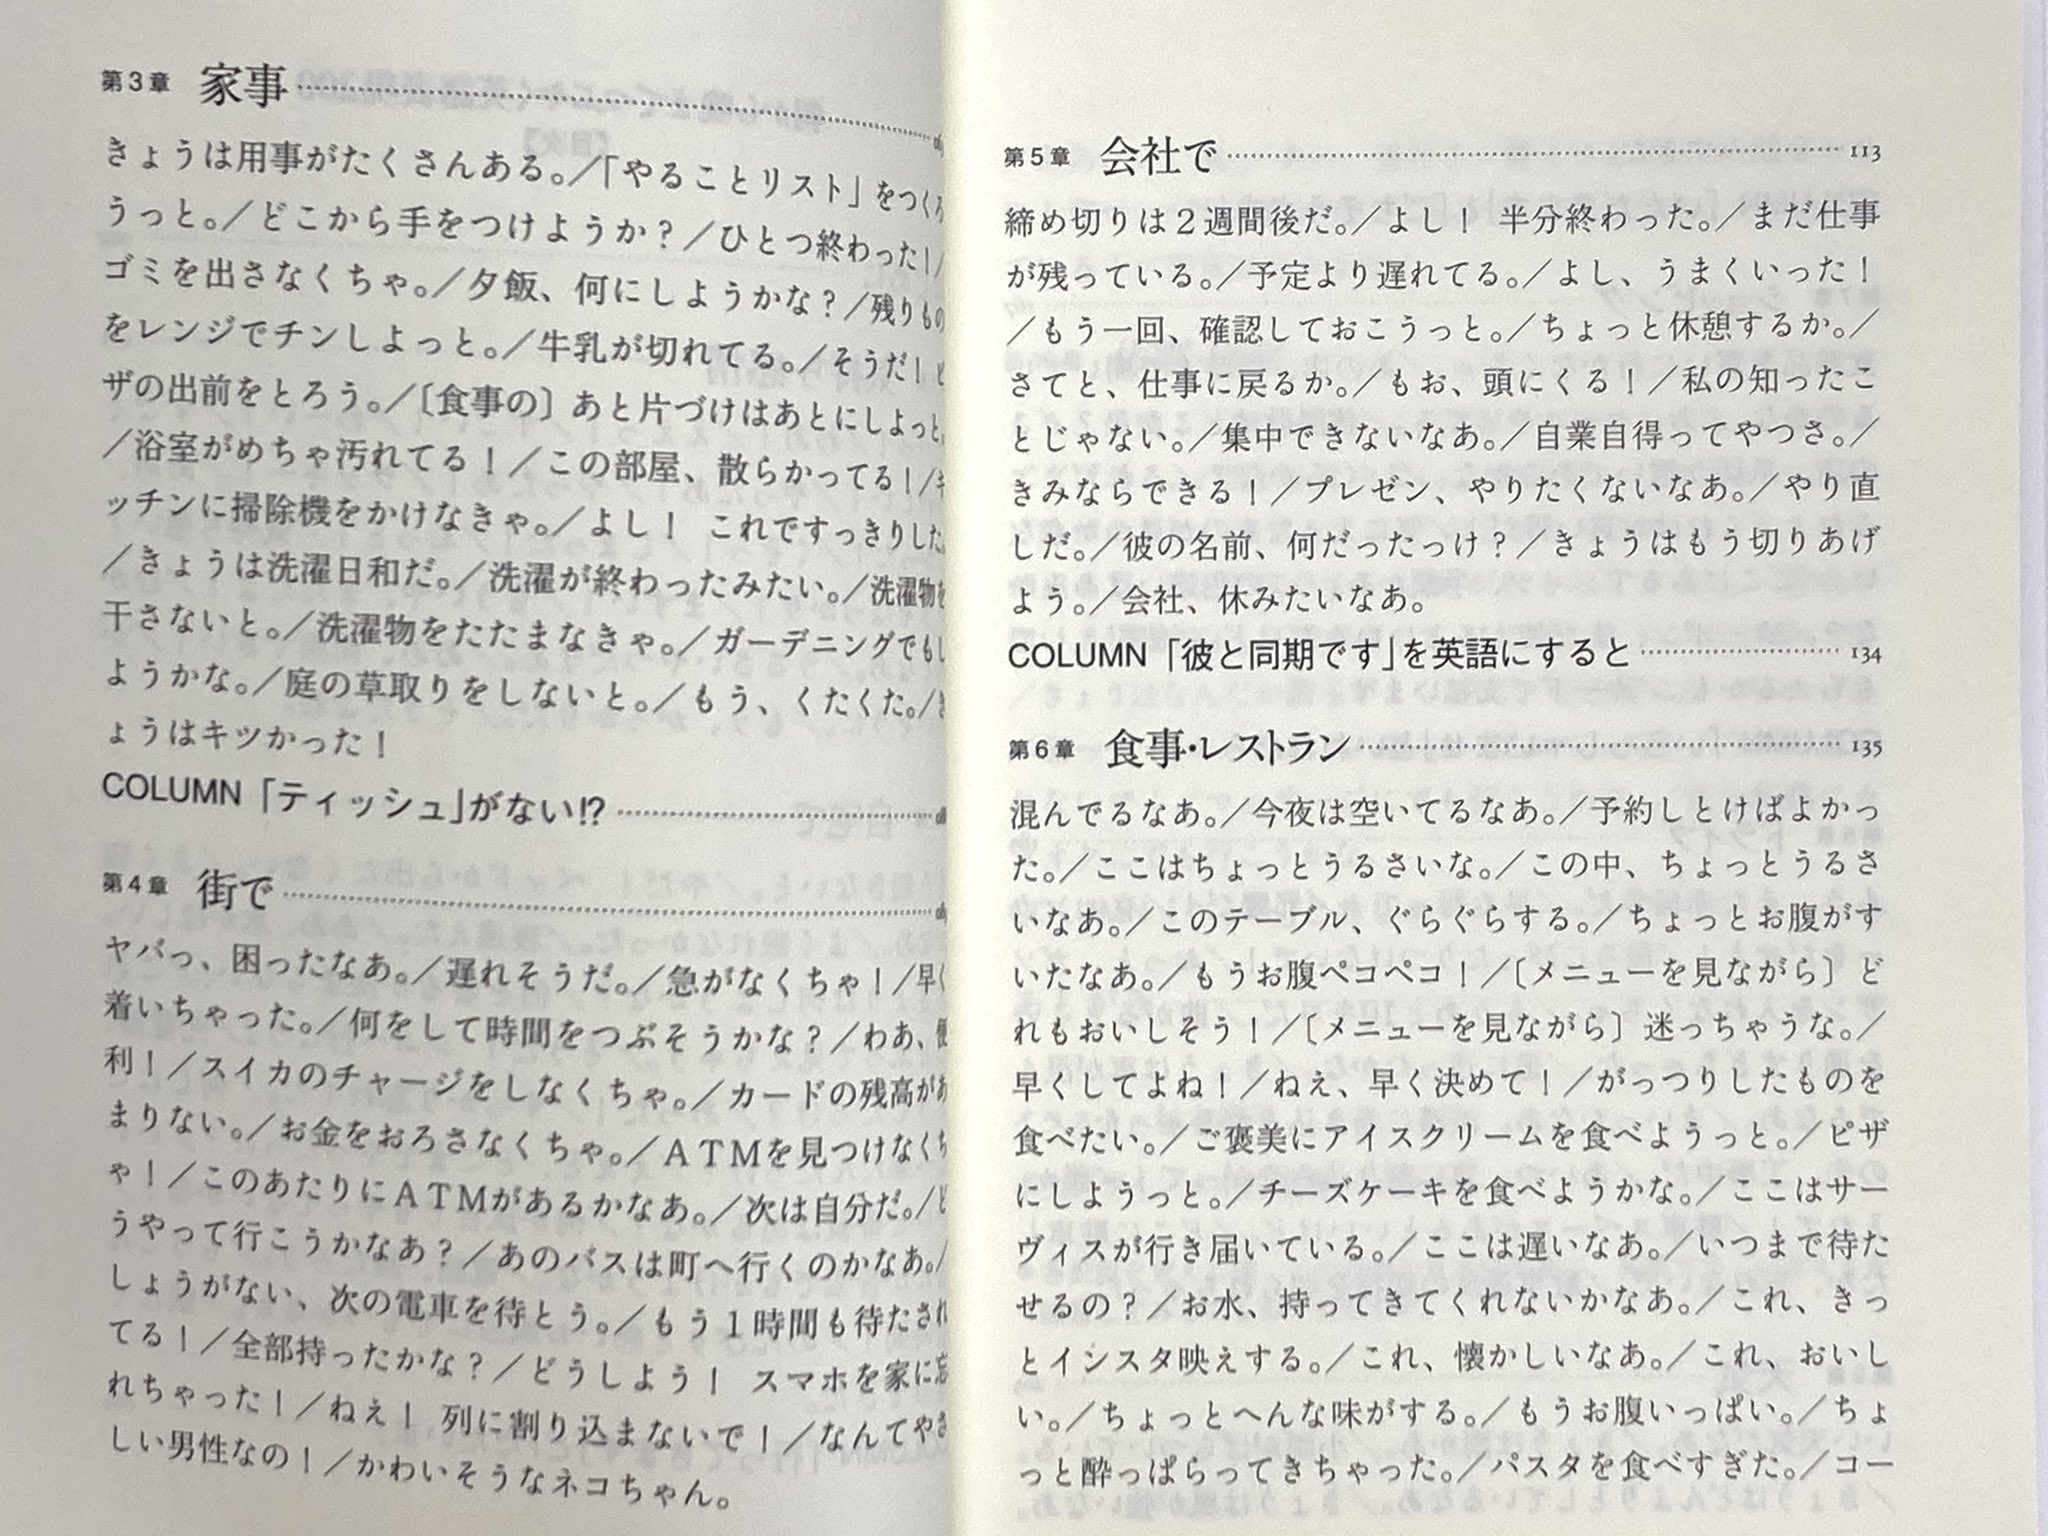 第3章 家事
きょうは用事がたくさんある。／「やることリスト」をつくろ
うっと。／どこから手をつけようか？／ひとつ終わった！／
ゴミを出さなくちゃ。／夕飯、何にしようかな？／残りもの
をレンジでチンしよっと。／牛乳が切れてる。／そうだ！ピ
ザの出前をとろう。／〔食事の〕あと片づけはあとにしよっと。
／浴室がめちゃ汚れてる！／この部屋、散らかってる！／キ
ッチンに掃除機をかけなきゃ。／よし！ これですっきりした。
／きょうは洗濯日和だ。／洗濯が終わったみたい。／洗濯物を
干さないと。／洗濯物をたたまなきゃ。／ガーデニングでもし
ようかな。／庭の草取りをしないと。／もう、くたくた。／き
ょうはキツかった！
COLUMN「ティッシュ」がない!?
第4章 街で
ヤバっ、困ったなあ。／遅れそうだ。／急がなくちゃ！／早く
着いちゃった。／何をして時間をつぶそうかな？／わあ、便
利！／スイカのチャージをしなくちゃ。／カードの残高があ
まりない。／お金をおろさなくちゃ。／ATMを見つけなくち
ゃ！／このあたりにATMがあるかなあ。／次は自分だ。／ど
うやって行こうかなあ？／あのバスは町へ行くのかなあ。／
しょうがない、次の電車を待とう。／もう1時間も待たされ
てる！／全部持ったかな？／どうしよう！ スマホを家に忘
れちゃった！／ねえ！ 列に割り込まないで！／なんてやさ
しい男性なの！／かわいそうなネコちゃん。
第5章 会社で 113
締め切りは2週間後だ。／よし！ 半分終わった。／まだ仕事
が残っている。／予定より遅れてる。／よし、うまくいった！
／もう一回、確認しておこうっと。／ちょっと休憩するか。／
さてと、仕事に戻るか。／もお、頭にくる！／私の知ったこ
とじゃない。／集中できないなあ。／自業自得ってやつさ。／
きみならできる！／プレゼン、やりたくないなあ。／やり直
しだ。／彼の名前、何だったっけ？／きょうはもう切りあげ
よう。／会社、休みたいなあ。
COLUMN「彼と同期です」を英語にすると 134
第6章 食事・レストラン 135
混んでるなあ。／今夜は空いてるなあ。／予約しとけばよかっ
た。／ここはちょっとうるさいな。／この中、ちょっとうるさ
いなあ。／このテーブル、ぐらぐらする。／ちょっとお腹がす
いたなあ。／もうお腹ペコペコ！／〔メニューを見ながら〕ど
れもおいしそう！／〔メニューを見ながら〕迷っちゃうな。／
早くしてよね！／ねえ、早く決めて！／がっつりしたものを
食べたい。／ご褒美にアイスクリームを食べようっと。／ピザ
にしようっと。／チーズケーキを食べようかな。／ここはサー
ヴィスが行き届いている。／ここは遅いなあ。／いつまで待た
せるの？／お水、持ってきてくれないかなあ。／これ、きっ
とインスタ映えする。／これ、懐かしいなあ。／これ、おいし
い。／ちょっとへんな味がする。／もうお腹いっぱい。／ちょ
っと酔っぱらってきちゃった。／パスタを食べすぎた。／コー